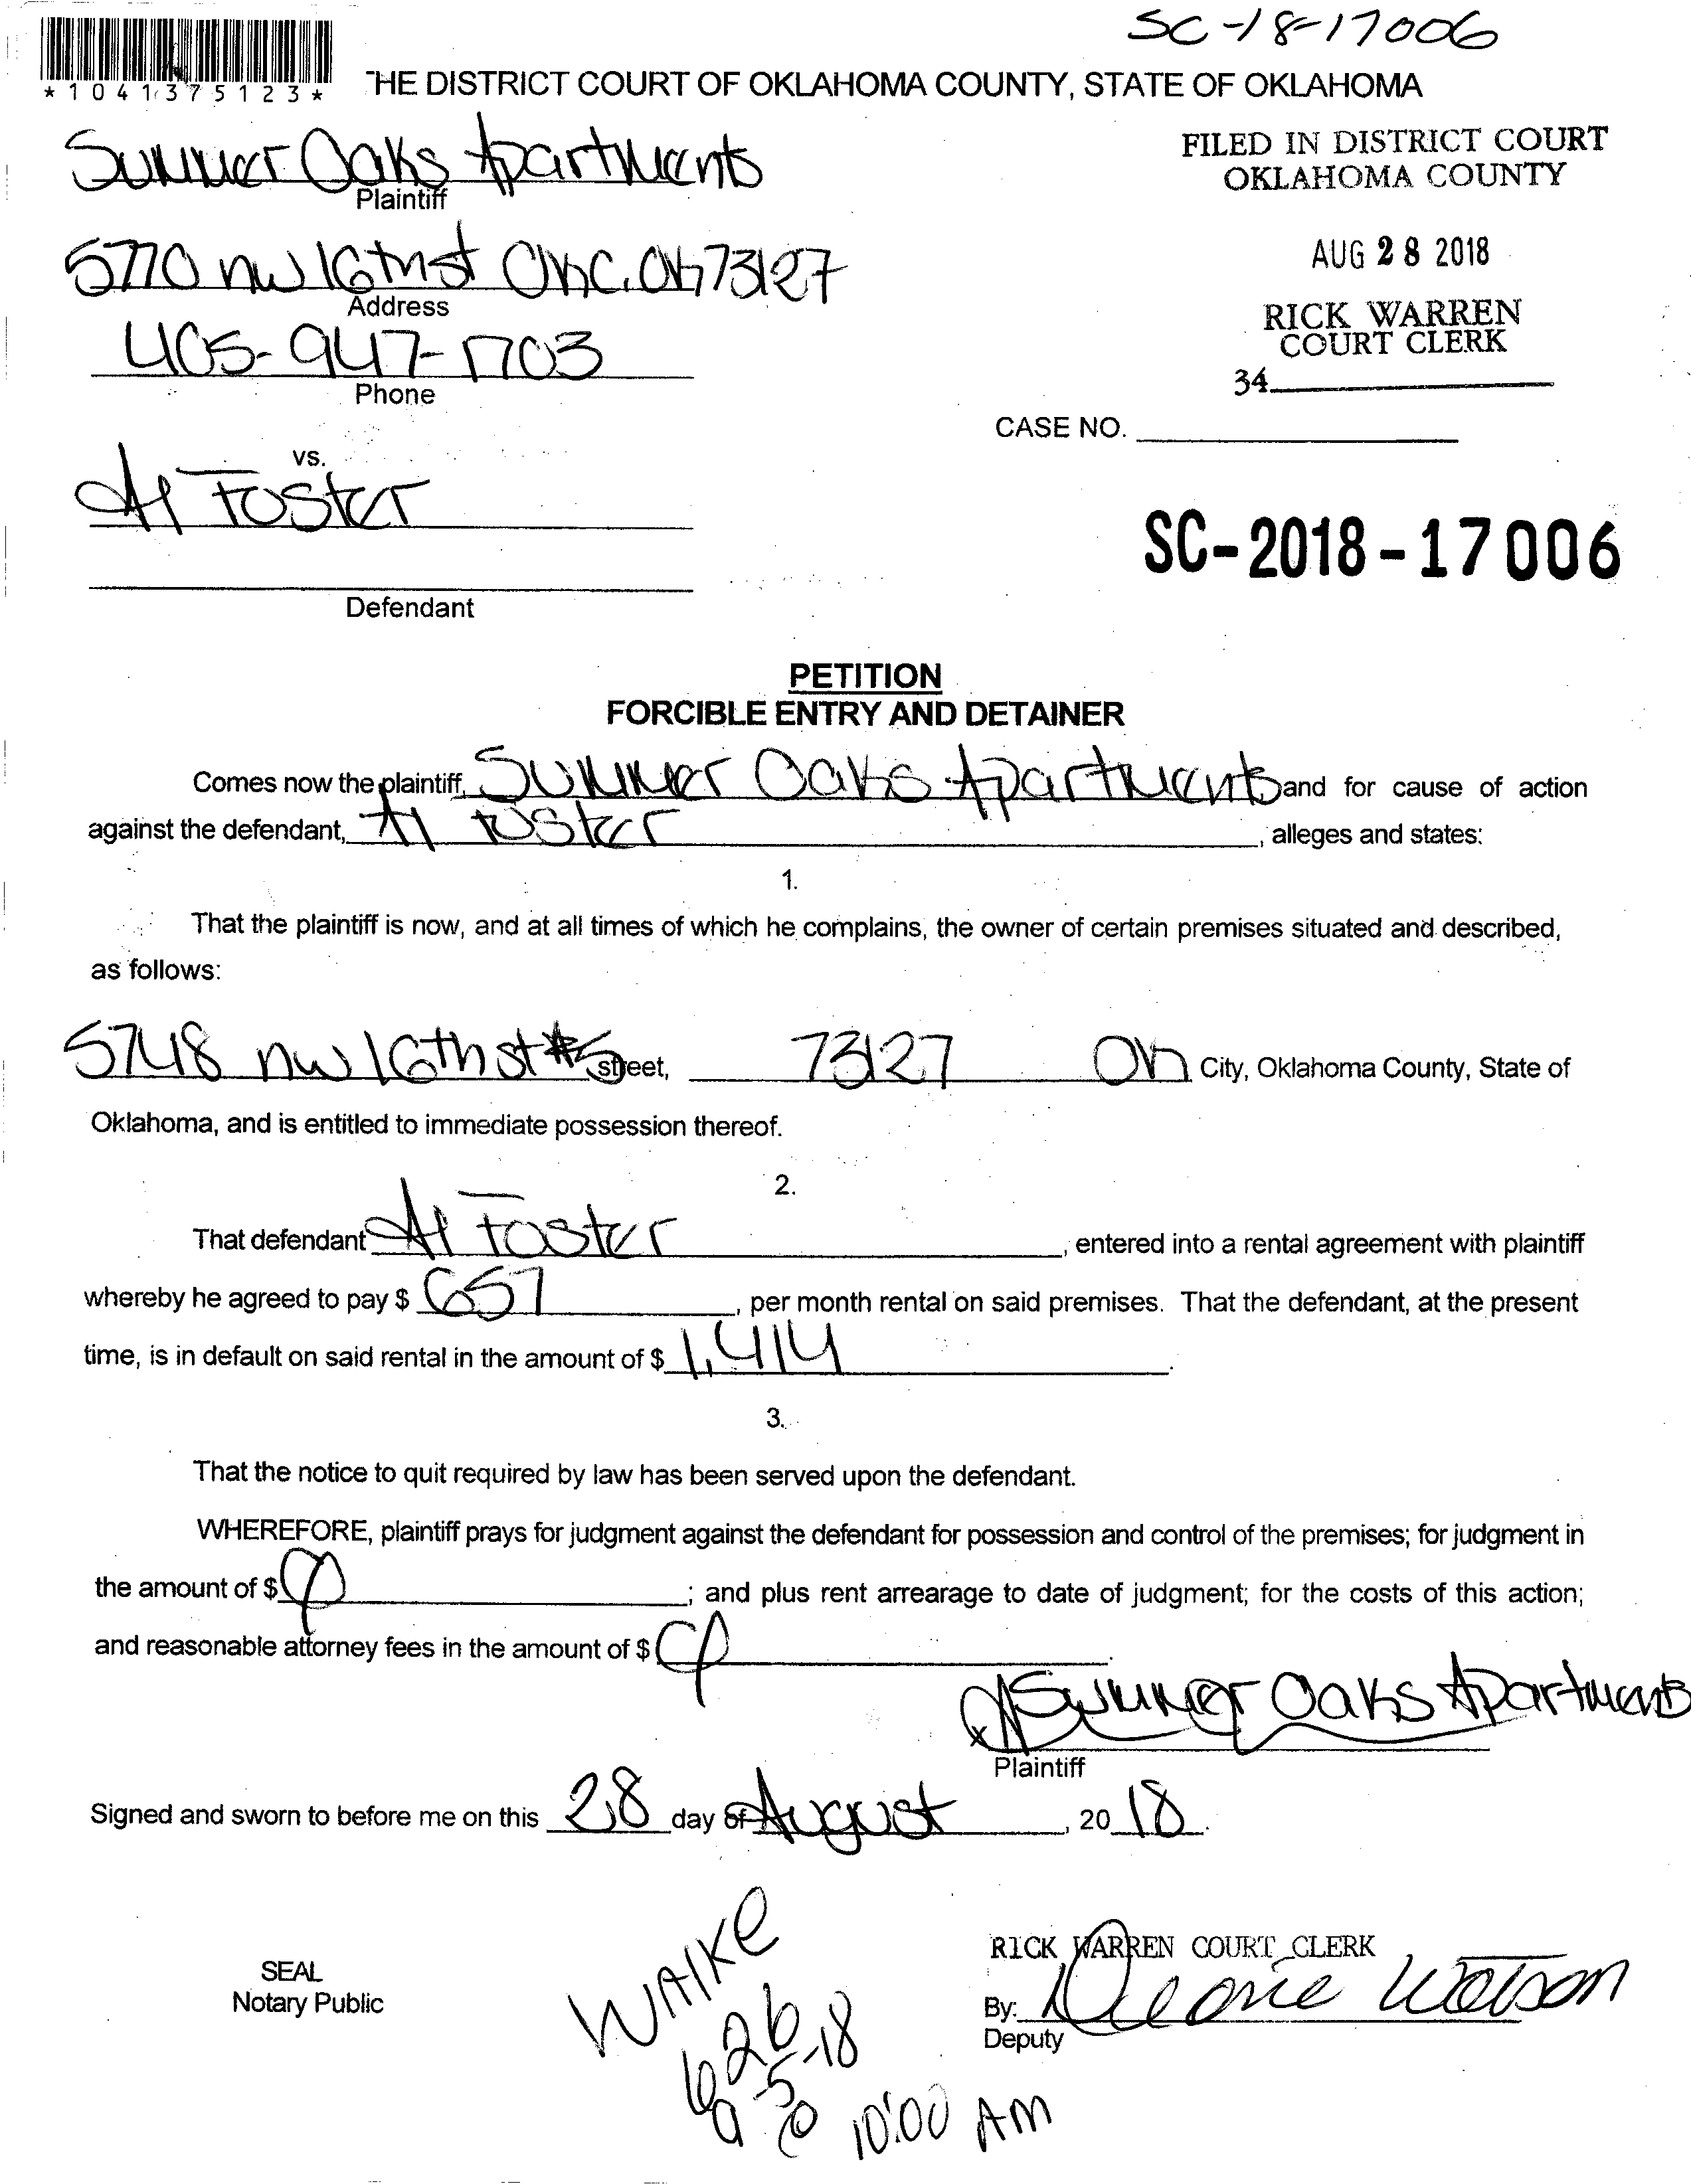 SC-18-17006
*1041375123*
THE DISTRICT COURT OF OKLAHOMA COUNTY, STATE OF OKLAHOMA
Summer Oaks Apartments
Plaintiff
FILED IN DISTRICT COURT
OKLAHOMA COUNTY
5770 nw 16th st OKC. OK 73127
Address
AUG 28 2018
405-947-1703
Phone
RICK WARREN
COURT CLERK
34
CASE NO.
vs.
Al Foster
SC-2018-17006
Defendant
PETITION
FORCIBLE ENTRY AND DETAINER
Comes now the plaintiff, Summer Oaks Apartments and for cause of action
against the defendant, Al Foster, alleges and states:
1.
That the plaintiff is now, and at all times of which he complains, the owner of certain premises situated and described,
as follows:
5748 nw 16th st #5 street, 73127 OK City, Oklahoma County, State of
Oklahoma, and is entitled to immediate possession thereof.
2.
That defendant Al Foster, entered into a rental agreement with plaintiff
whereby he agreed to pay $ 657, per month rental on said premises. That the defendant, at the present
time, is in default on said rental in the amount of $ 1,414.
3.
That the notice to quit required by law has been served upon the defendant.
WHEREFORE, plaintiff prays for judgment against the defendant for possession and control of the premises; for judgment in
the amount of $ ; and plus rent arrearage to date of judgment; for the costs of this action;
and reasonable attorney fees in the amount of $ .
x Summer Oaks Apartments
Plaintiff
Signed and sworn to before me on this 28 day of August, 20 18.
WAIKE
626
9-5-18
@ 10:00 AM
SEAL
Notary Public
RICK WARREN COURT CLERK
By: Watson
Deputy